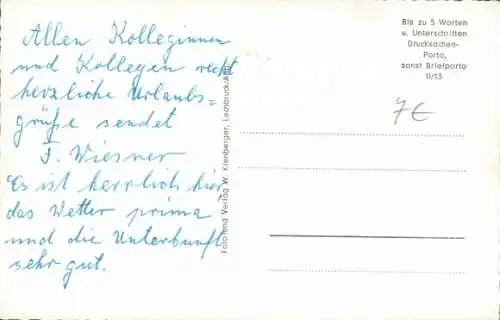 Allen Kolleginnen
und Kollegen recht
herzliche Urlaubs=
grüße sendet
F. Wiesner
Es ist herrlich hier
das Wetter prima
und die Unterkunft
sehr gut.
Foto und Verlag W. Kienberger, Lechbruck/A
Bis zu 5 Worten
u. Unterschriften
Drucksachen-
Porto,
sonst Briefporto
11/13
7€